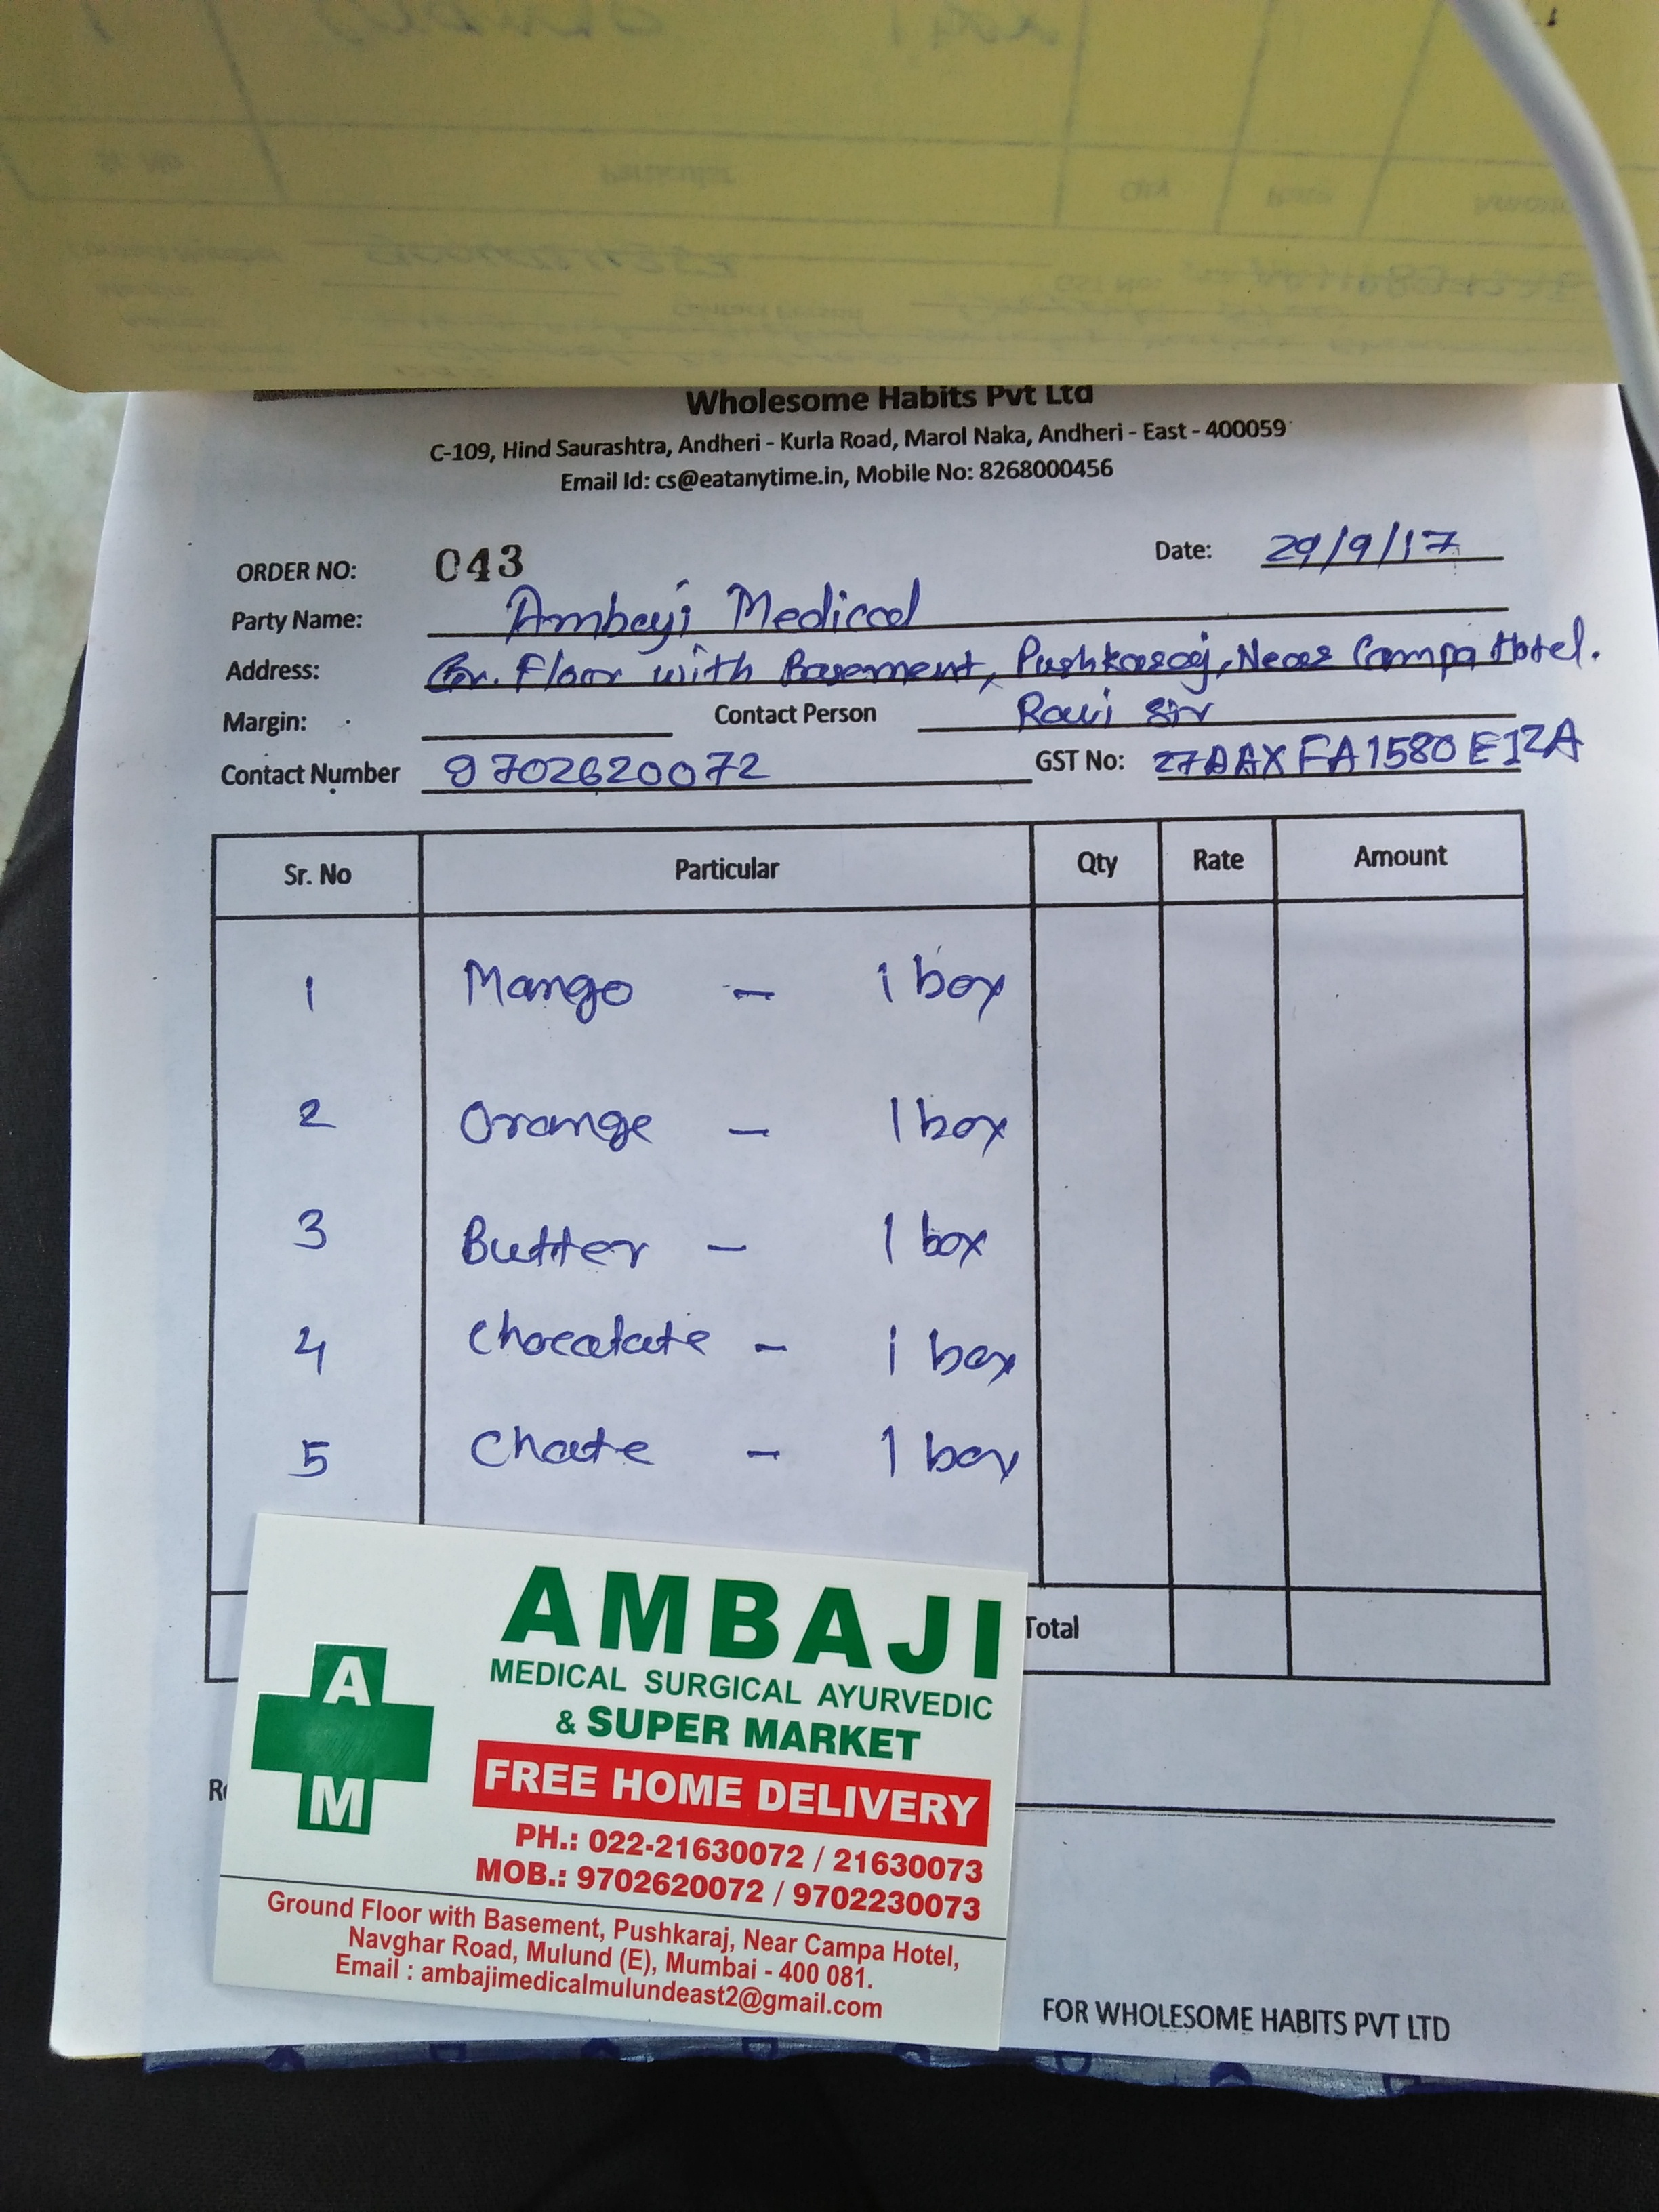 Wholesome Habits Pvt Ltd
C-109, Hind Saurashtra, Andheri - Kurla Road, Marol Naka, Andheri - East - 400059
Email Id: cs@eatanytime.in, Mobile No: 8268000456
ORDER NO: 043 Date: 29/9/17
Party Name: Ambeyji Medical
Address: Gr. Floor with Basement, Pushkaraj, Near Campa Hotel.
Margin: Contact Person Ravi Sir
Contact Number 9702620072 GST No: 27AAXFA1580E1ZA
Sr. No Particular Qty Rate Amount
1 Mango - 1 box
2 Orange - 1 box
3 Butter - 1 box
4 Chocalate - 1 box
5 - 1 box
Total
AMBAJI
MEDICAL SURGICAL AYURVEDIC
& SUPER MARKET
FREE HOME DELIVERY
PH.: 022-21630072 / 21630073
MOB.: 9702620072 / 9702230073
A
M
Ground Floor with Basement, Pushkaraj, Near Campa Hotel,
Navghar Road, Mulund (E), Mumbai - 400 081.
Email : ambajimedicalmulundeast2@gmail.com
FOR WHOLESOME HABITS PVT LTD